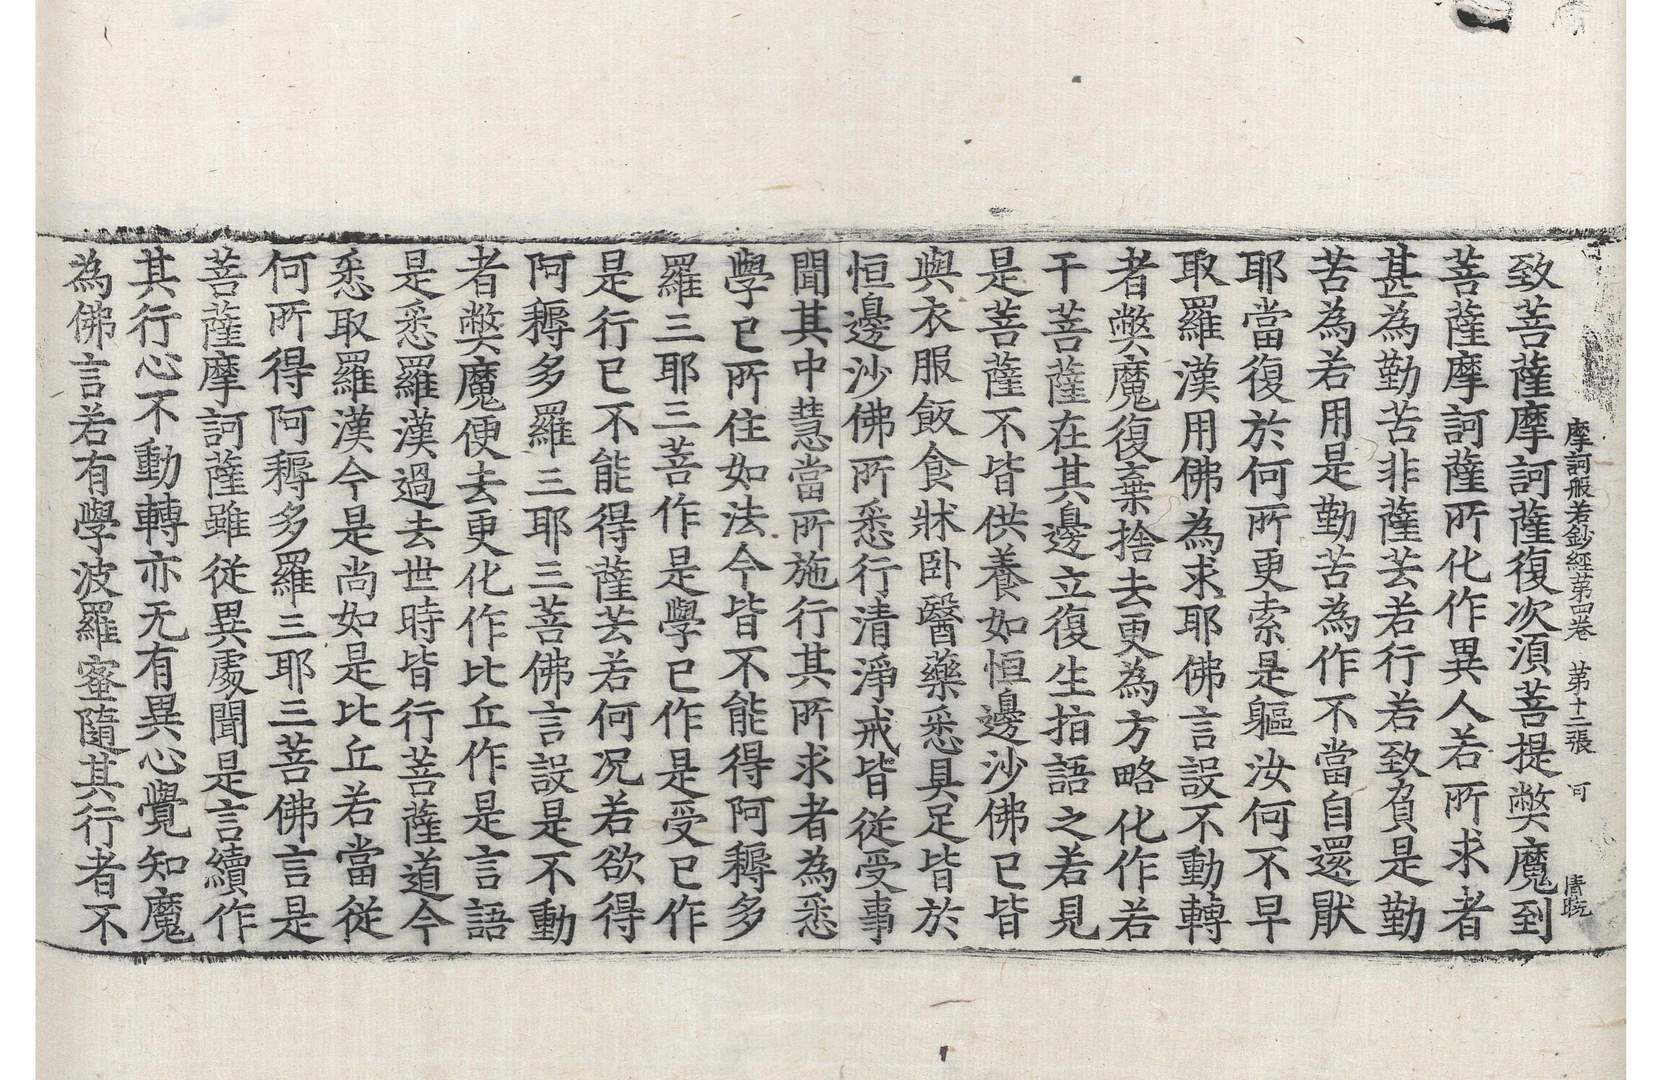 摩訶般若鈔經第四卷　第十二張　可
致菩薩摩訶薩復次須菩提弊魔到
菩薩摩訶薩所化作異人若所求者
甚為勤苦非薩芸若行若致負是勤
苦為若用是勤苦為作不當自還猒
耶當復於何所更索是軀汝何不早
取羅漢用佛為求耶佛言設不動轉
者弊魔復棄捨去更為方略化作若
干菩薩在其邊立復生指語之若見
是菩薩不皆供養如恒邊沙佛已皆
與衣服飯食牀卧醫藥悉具足皆於
恒邊沙佛所悉行清淨戒皆從受事
聞其中慧當所施行其所求者為悉
學已所住如法今皆不能得阿耨多
羅三耶三菩作是學已作是受已作
是行已不能得薩芸若何況若欲得
阿耨多羅三耶三菩佛言設是不動
者弊魔便去更化作比丘作是言語
是悉羅漢過去世時皆行菩薩道今
悉取羅漢今是尚如是比丘若當從
何所得阿耨多羅三耶三菩佛言是
菩薩摩訶薩雖從異處聞是言續作
其行心不動轉亦无有異心覺知魔
為佛言若有學波羅蜜隨其行者不